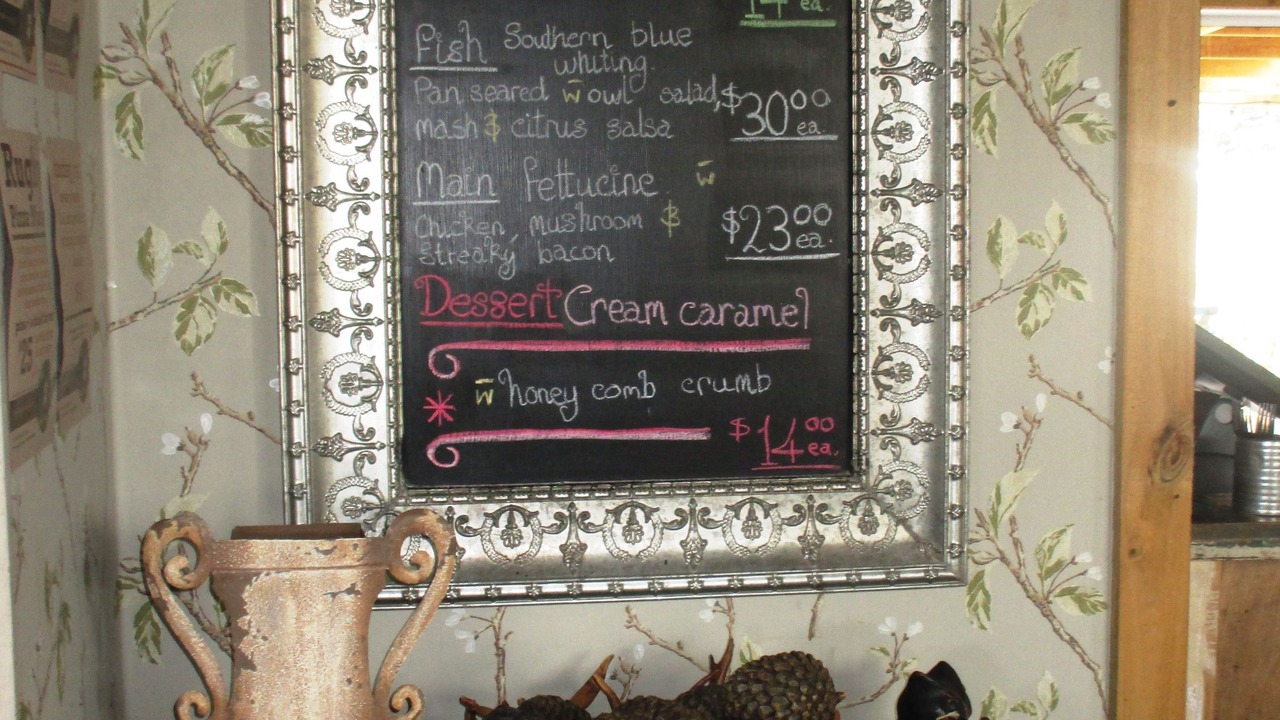 14 ea.
Fish Southern blue
whiting
Pan seared w̄ owl salad,
mash & citrus salsa $30.00 ea.
Main Fettucine w̄
Chicken, mushroom &
streaky bacon $23.00 ea.
Dessert Cream caramel
* w̄ honey comb crumb
$14.00 ea.
Rug
25